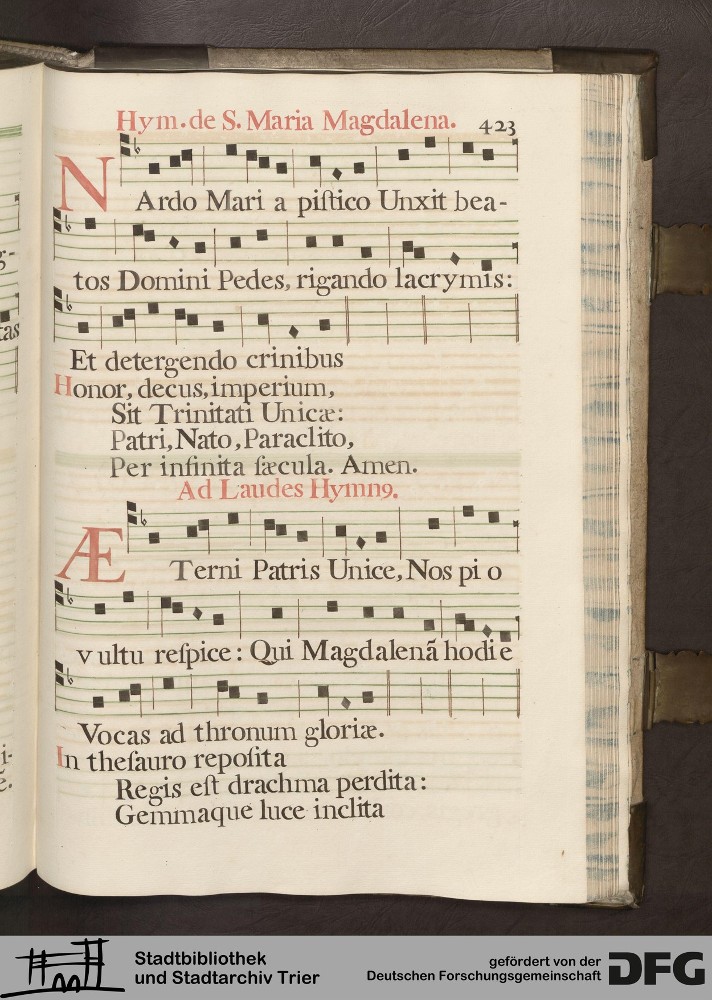 Hym. de S. Maria Magdalena. 423
NArdo Mari a piſtico Unxit bea-
tos Domini Pedes, rigando lacrymis:
Et detergendo crinibus
Honor, decus, imperium,
Sit Trinitati Unicæ:
Patri, Nato, Paraclito,
Per infinita ſæcula. Amen.
Ad Laudes Hymnꝰ.
ÆTerni Patris Unice, Nos pi o
vultu reſpice: Qui Magdalenā hodie
Vocas ad thronum gloriæ.
In theſauro repoſita
Regis eſt drachma perdita:
Gemmaque luce inclita
Stadtbibliothek
und Stadtarchiv Trier
gefördert von der
Deutschen Forschungsgemeinschaft
DFG